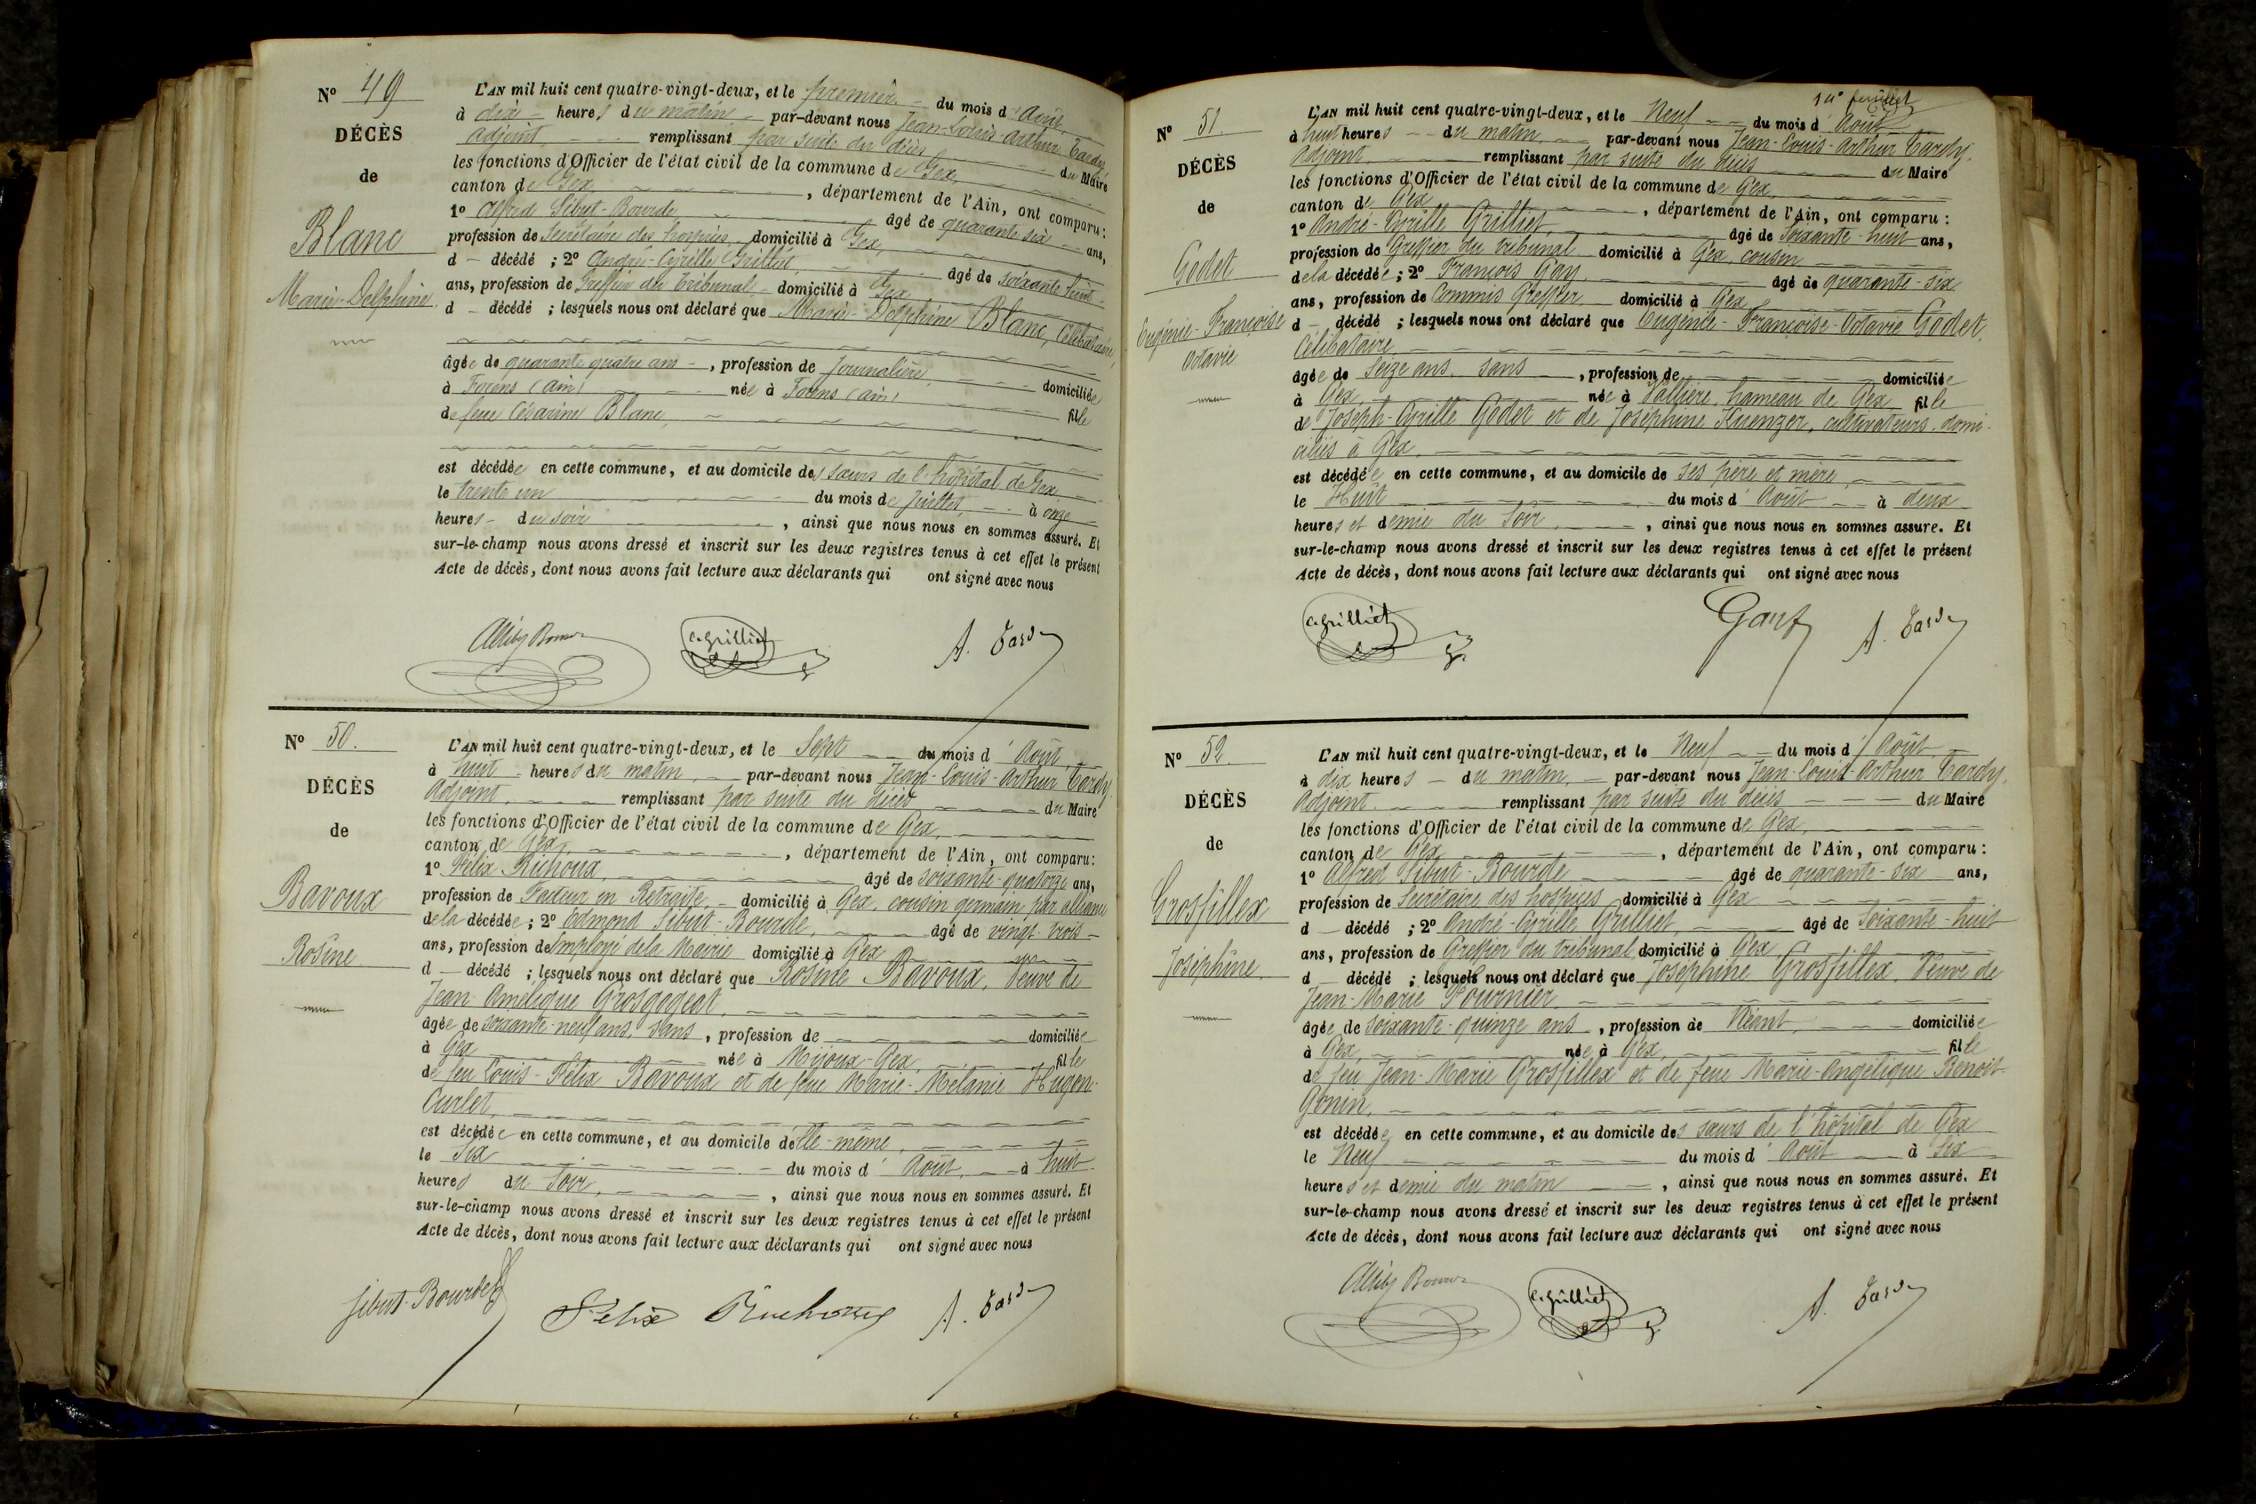 Nº 49
DÉCÈS
de
Blanc
Marie-Delphine
L'AN mil huit cent quatre-vingt-deux, et le premier du mois d'Août,
à dix heures du matin par-devant nous Jean-Louis-Arthur Tardy,
adjoint remplissant par suite du décès du Maire
les fonctions d'Officier de l'état civil de la commune de Gex,
canton de Gex, département de l'Ain, ont comparu :
1º Alfred Sibut-Bourde âgé de quarante six ans,
profession de Secrétaire des hospices domicilié à Gex,
d décédé ; 2º André-Cyrille Grilliet, âgé de soixante huit
ans, profession de Greffier du Tribunal domicilié à Gex
d décédé ; lesquels nous ont déclaré que Marie-Delphine Blanc, Célibataire,
âgée de quarante quatre ans, profession de Journalière, domiciliée
à (ain) née à (ain) fille
de feue Césarine Blanc,
est décédée en cette commune, et au domicile des sœurs de l'hôpital de Gex,
le trente un du mois de Juillet, à onze
heures du soir, ainsi que nous nous en sommes assuré. Et
sur-le-champ nous avons dressé et inscrit sur les deux registres tenus à cet effet le présent
Acte de décès, dont nous avons fait lecture aux déclarants qui ont signé avec nous
c. grilliet A. Tardy
Nº 50.
DÉCÈS
de
Bavoux
Rosine
L'AN mil huit cent quatre-vingt-deux, et le Sept du mois d'Août,
à huit heures du matin, par-devant nous Jean-Louis-Arthur Tardy,
Adjoint, remplissant par suite du décès du Maire
les fonctions d'Officier de l'état civil de la commune de Gex,
canton de Gex, département de l'Ain, ont comparu :
1º Félix Ruhoux, âgé de soixante-quatorze ans,
profession de Facteur en Retraite, domicilié à Gex, cousin germain par alliance
de la décédée ; 2º Edmond Sibut-Bourde, âgé de vingt-trois
ans, profession de Employé de la Mairie domicilié à Gex
d décédé ; lesquels nous ont déclaré que Rosine Bavoux, Veuve de
Jean Grosgogeat,
âgée de soixante-neuf ans, sans, profession de domiciliée
à Gex née à Mijoux-Gex, fille
de feu Louis-Félix Bavoux et de feue Marie-Mélanie Hugon-
Curlet,
est décédée en cette commune, et au domicile d'elle-même,
le Six du mois d'Août, à huit
heures du Soir, ainsi que nous nous en sommes assuré. Et
sur-le-champ nous avons dressé et inscrit sur les deux registres tenus à cet effet le présent
Acte de décès, dont nous avons fait lecture aux déclarants qui ont signé avec nous
Sibut-Bourde Félix A. Tardy
14e feuillet
Nº 51.
DÉCÈS
de
Godet
Eugénie-Françoise
Octavie
L'AN mil huit cent quatre-vingt-deux, et le Neuf du mois d'Août
à huit heures du matin, par-devant nous Jean-Louis-Arthur Tardy,
Adjoint remplissant par suite du décès du Maire
les fonctions d'Officier de l'état civil de la commune de Gex,
canton de Gex, département de l'Ain, ont comparu :
1º André-Cyrille Grilliet, âgé de Soixante-huit ans,
profession de Greffier du tribunal domicilié à Gex, cousin
de la décédée ; 2º François Gay, âgé de quarante-six
ans, profession de Commis Greffier domicilié à Gex
d décédé ; lesquels nous ont déclaré que Eugénie-Françoise-Octavie Godet,
Célibataire,
âgée de Seize ans, sans, profession de domiciliée
à Gex, née à hameau de Gex fille
de Joseph-Cyrille Godet et de Joséphine Kuenzer, cultivateurs, domi-
ciliés à Gex,
est décédée en cette commune, et au domicile de ses père et mère,
le Huit du mois d'Août à deux
heures et demie du Soir, ainsi que nous nous en sommes assuré. Et
sur-le-champ nous avons dressé et inscrit sur les deux registres tenus à cet effet le présent
Acte de décès, dont nous avons fait lecture aux déclarants qui ont signé avec nous
c. grilliet Gay f A. Tardy
Nº 52.
DÉCÈS
de
Grosfillex
Joséphine
L'AN mil huit cent quatre-vingt-deux, et le Neuf du mois d'Août
à dix heures du matin, par-devant nous Jean-Louis-Arthur Tardy,
Adjoint remplissant par suite du décès du Maire
les fonctions d'Officier de l'état civil de la commune de Gex,
canton de Gex, département de l'Ain, ont comparu :
1º Alfred Sibut-Bourde âgé de quarante-six ans,
profession de Secrétaire des hospices domicilié à Gex
d décédé ; 2º André-Cyrille Grilliet, âgé de Soixante-huit
ans, profession de Greffier du tribunal domicilié à Gex
d décédé ; lesquels nous ont déclaré que Joséphine Grosfillex, Veuve de
Jean-Marie Fournier
âgée de soixante-quinze ans, profession de Néant, domiciliée
à Gex, née à Gex, fille
de feu Jean-Marie Grosfillex et de feue Marie-Angélique Benoit-
Gonin,
est décédée en cette commune, et au domicile des sœurs de l'hôpital de Gex
le Neuf du mois d'Août à six
heures et demie du matin, ainsi que nous nous en sommes assuré. Et
sur-le-champ nous avons dressé et inscrit sur les deux registres tenus à cet effet le présent
Acte de décès, dont nous avons fait lecture aux déclarants qui ont signé avec nous
c. grilliet A. Tardy